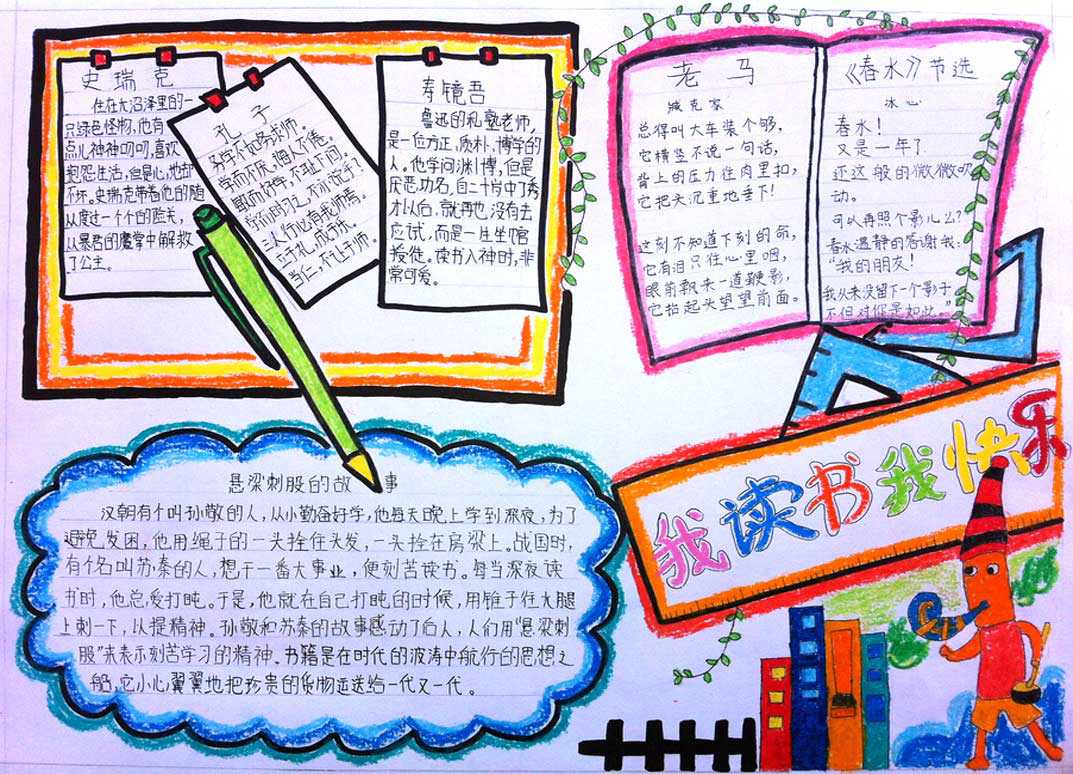 史瑞克
住在大沼泽里的一
只绿色怪物,他有
点儿神神叨叨,喜欢
抱怨生活,但是心地却
不坏。史瑞克带着他的随
从度过一个个的险关,
从暴君的魔掌中解救
了公主。
孔子
学而不厌,诲人不倦。
敏而好学,不耻下问。
三人行必有我师焉。
立于礼,成于乐。
当仁,不让于师。
寿镜吾
鲁迅的私塾老师,
是一位方正,质朴,博学的
人。他学问渊博,但是
厌恶功名,自二十岁中了秀
才以后,就再也没有去
应试,而是一生坐馆
授徒。读书入神时,非
常可爱。
老马
臧克家
总得叫大车装个够,
它横竖不说一句话,
背上的压力往肉里扣,
它把头沉重地垂下!
这刻不知道下刻的命,
它有泪只往心里咽,
眼前飘来一道鞭影,
它抬起头望望前面。
《春水》节选
冰心
春水!
又是一年了
还这般的微微吹
动。
可以再照个影儿么?
春水温静的答谢我:
“我的朋友!
我从来没留下一个影子
不但对你是如此。”
我读书我快乐
悬梁刺股的故事
汉朝有个叫孙敬的人,从小勤奋好学,他每天晚上学到深夜,为了
避免发困,他用绳子的一头拴住头发,一头拴在房梁上。战国时,
有个名叫苏秦的人,想干一番大事业,便刻苦读书。每当深夜读
书时,他总爱打盹。于是,他就在自己打盹的时候,用锥子往大腿
上刺一下,以提精神。孙敬和苏秦的故事感动了后人,人们用“悬梁刺
股”来表示刻苦学习的精神。书籍是在时代的波涛中航行的思想之
船,它小心翼翼地把珍贵的货物运送给一代又一代。